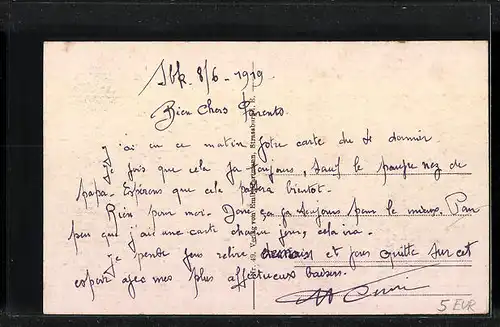 Sbk. 8/6 - 1919
Bien Chers Parents.
J'ai eu ce matin votre carte du 4 dernier
Je vois que cela va toujours, sauf le pauvre nez de
papa. Espérons que cela passera bientôt.
Rien pour moi. Donc ça va toujours pour le mieux. Pour
peu que j'aie une carte chaque jour, cela ira.
Je pense vous relire demain et vous quitte sur cet
espoir avec mes plus affectueux baisers.
Verlag von Strassburg
5 EUR